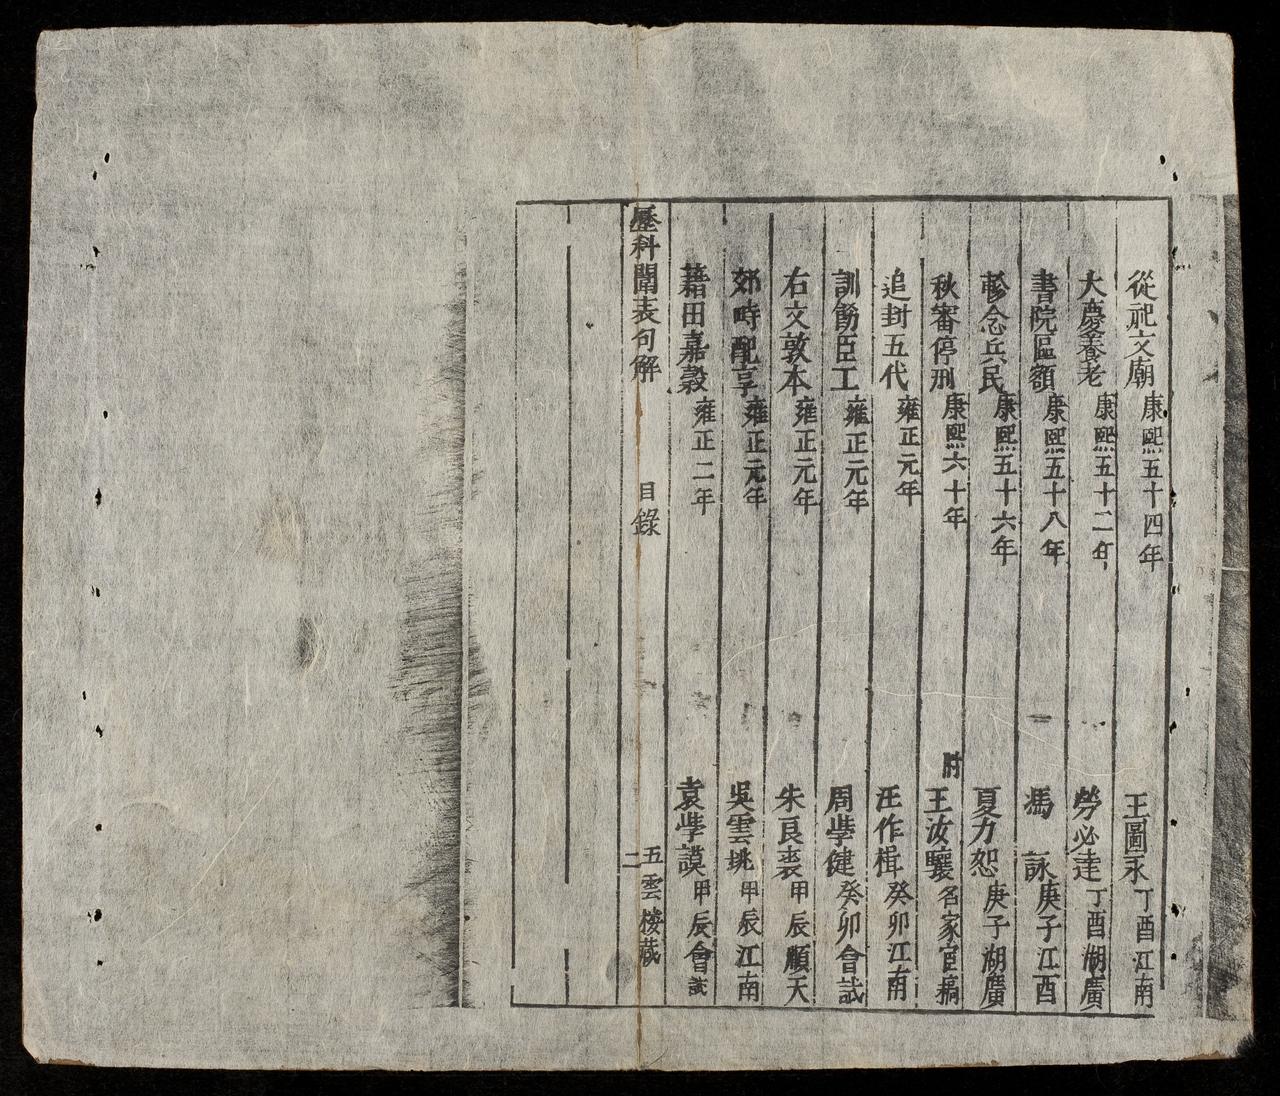 從祀文廟 康熙五十四年 王圖永 丁酉江南
大慶養老 康熙五十二年 勞必達 丁酉湖廣
書院區額 康熙五十八年 馮詠 庚子江西
軫念兵民 康熙五十六年 夏力恕 庚子湖廣
秋審停刑 康熙六十年 附 王汝驤 名家宦稿
追封五代 雍正元年 汪作楫 癸卯江南
訓飭臣工 雍正元年 周學健 癸卯會試
右文敦本 雍正元年 朱良裘 甲辰順天
郊時配享 雍正元年 吳雲挑 甲辰江南
藉田嘉穀 雍正二年 袁學謨 甲辰會試
歷科闈表句解 目錄 二 五雲樓藏